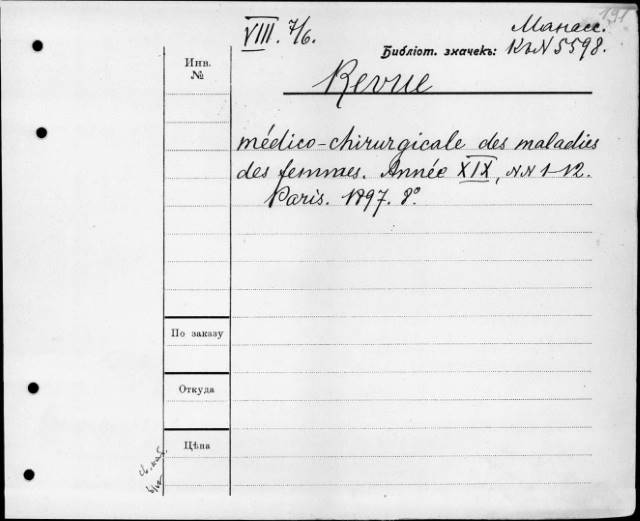 191
VIII. 7/6.
Манасс.
Библіот. значекъ: КъN 5598.
Инв.
№
Revue
médico-chirurgicale des maladies
des femmes. Année XIX, NN 1-12.
Paris. 1897. 8°
По заказу
Откуда
Цѣна